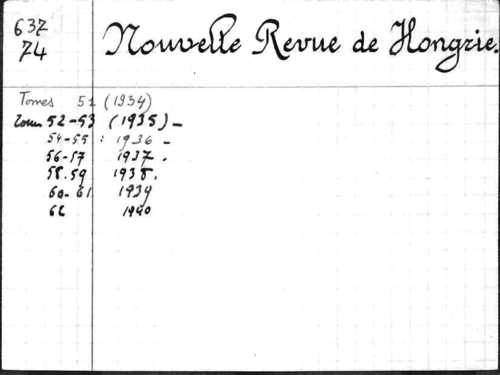 637
74
Nouvelle Revue de Hongrie.
Tomes 51 (1934)
Tom 52-53 (1935) -
54-55 : 1936 -
56-57 1937.
58.59 1938.
60-61 1939
62 1940